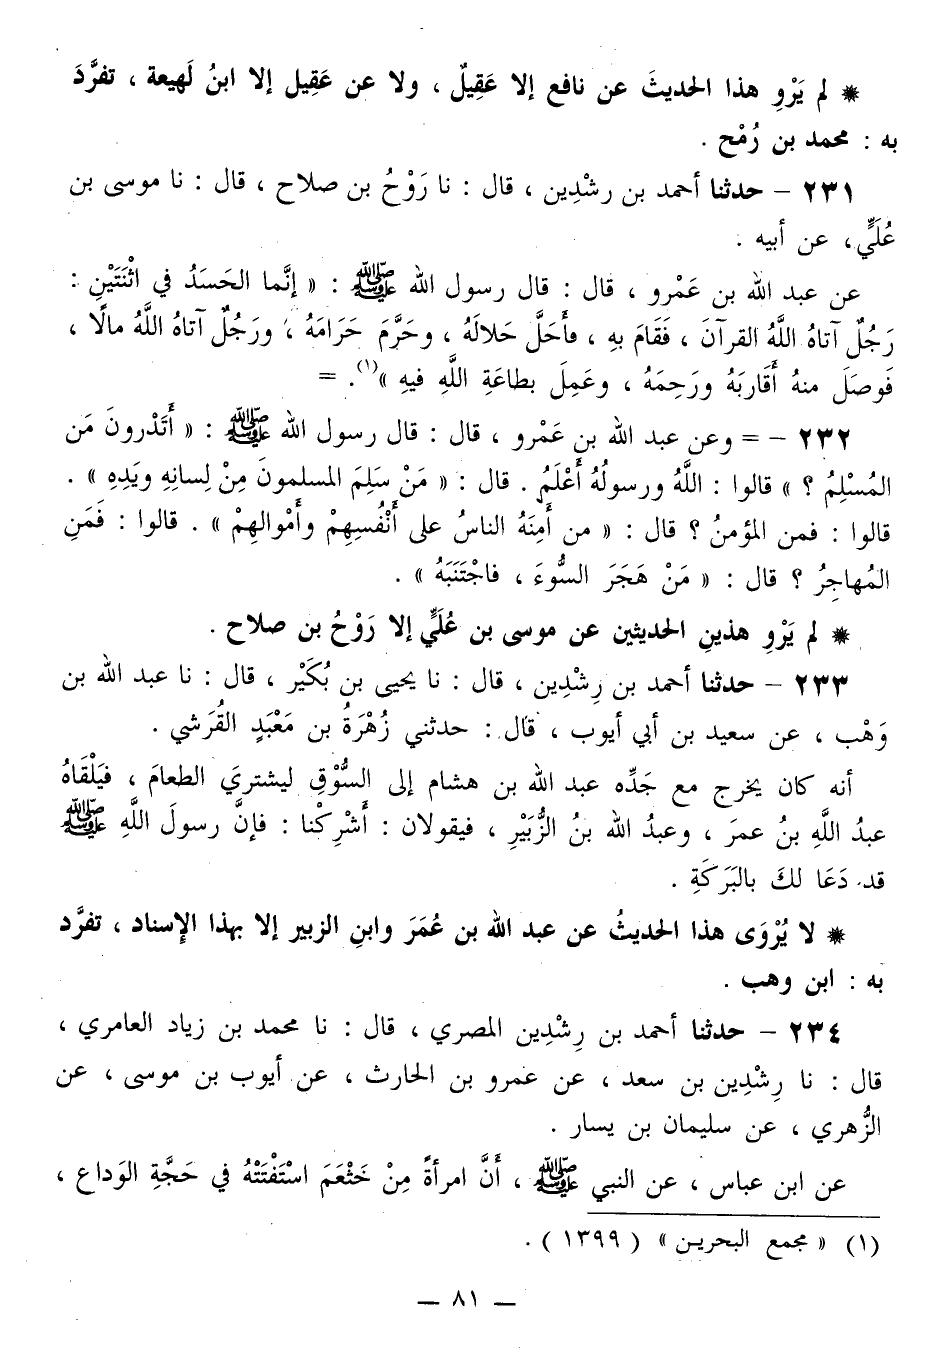 * لم يَرْوِ هذا الحديثَ عن نافع إلا عَقِيلٌ ، ولا عن عَقِيل إلا ابنُ لَهيعة ، تفرَّدَ
به : محمد بن رُمْح .
٢٣١ – حدثنا أحمد بن رشْدِين ، قال : نا رَوْحُ بن صلاح ، قال : نا موسى بن
عُلَيٍّ، عن أبيه .
عن عبد الله بن عَمْرو ، قال : قال رسول الله ﷺ : « إنَّما الحَسَدُ في اثْنَتَيْنِ :
رَجُلٌ آتاهُ اللَّهُ القرآنَ ، فَقَامَ بِهِ ، فأَحَلَّ حَلالَهُ ، وحَرَّمَ حَرَامَهُ ، ورَجُلٌ آتاهُ اللَّهُ مالًا ،
فَوصَلَ منهُ أَقَاربَهُ ورَحِمَهُ ، وعَمِلَ بطاعَةِ اللَّهِ فيهِ »(١). =
٢٣٢ – = وعن عبد الله بنِ عَمْرو ، قال : قال رسول الله ﷺ : « أَتَدْرونَ مَن
المُسْلِمُ ؟ » قالوا : اللَّهُ ورسولُهُ أَعْلَمُ . قال : « مَنْ سَلِمَ المسلمونَ مِنْ لِسانِهِ ويَدِهِ » .
قالوا : فمن المؤمنُ ؟ قال : « من أَمِنَهُ الناسُ على أَنْفُسِهِمْ وأَمْوالهِمْ » . قالوا : فَمَنِ
المُهاجِرُ ؟ قال : « مَنْ هَجَرَ السُّوءَ ، فاجْتَنَبَهُ » .
* لم يَرْوِ هذينِ الحديثين عن موسى بن عُلَيٍّ إلا رَوْحُ بن صلاح .
٢٣٣ – حدثنا أحمد بن رِشْدِين ، قال : نا يحيى بن بُكَيْر ، قال : نا عبد الله بن
وَهْب ، عن سعيد بن أبي أيوب ، قال : حدثني زُهْرَةُ بن مَعْبَدٍ القُرَشي .
أنه كان يخرج مع جَدِّه عبد الله بن هشام إلى السُّوْقِ ليشتريَ الطعامَ ، فيَلْقَاهُ
عبدُ اللَّهِ بنُ عمرَ ، وعبدُ الله بنُ الزُّبَيْرِ ، فيقولان : أَشْرِكْنا : فإنَّ رسولَ اللَّهِ ﷺ
قد دَعَا لكَ بالبَرَكَةِ .
* لا يُرْوَى هذا الحديثُ عن عبد الله بن عُمَرَ وابنِ الزبير إلا بهذا الإسناد ، تفرَّد
به : ابن وهب .
٢٣٤ – حدثنا أحمد بن رِشْدِين المصري ، قال : نا محمد بن زياد العامري ،
قال : نا رِشْدِين بن سعد ، عن عمرو بن الحارث ، عن أيوب بن موسى ، عن
الزُّهري ، عن سليمان بن يسار .
عن ابن عباس ، عن النبي ﷺ ، أَنَّ امرأةً مِنْ خَثْعَمَ اسْتَفْتَتْهُ في حَجَّةِ الوَداع ،
(١) « مجمع البحرين » ( ١٣٩٩ ) .
— ٨١ —